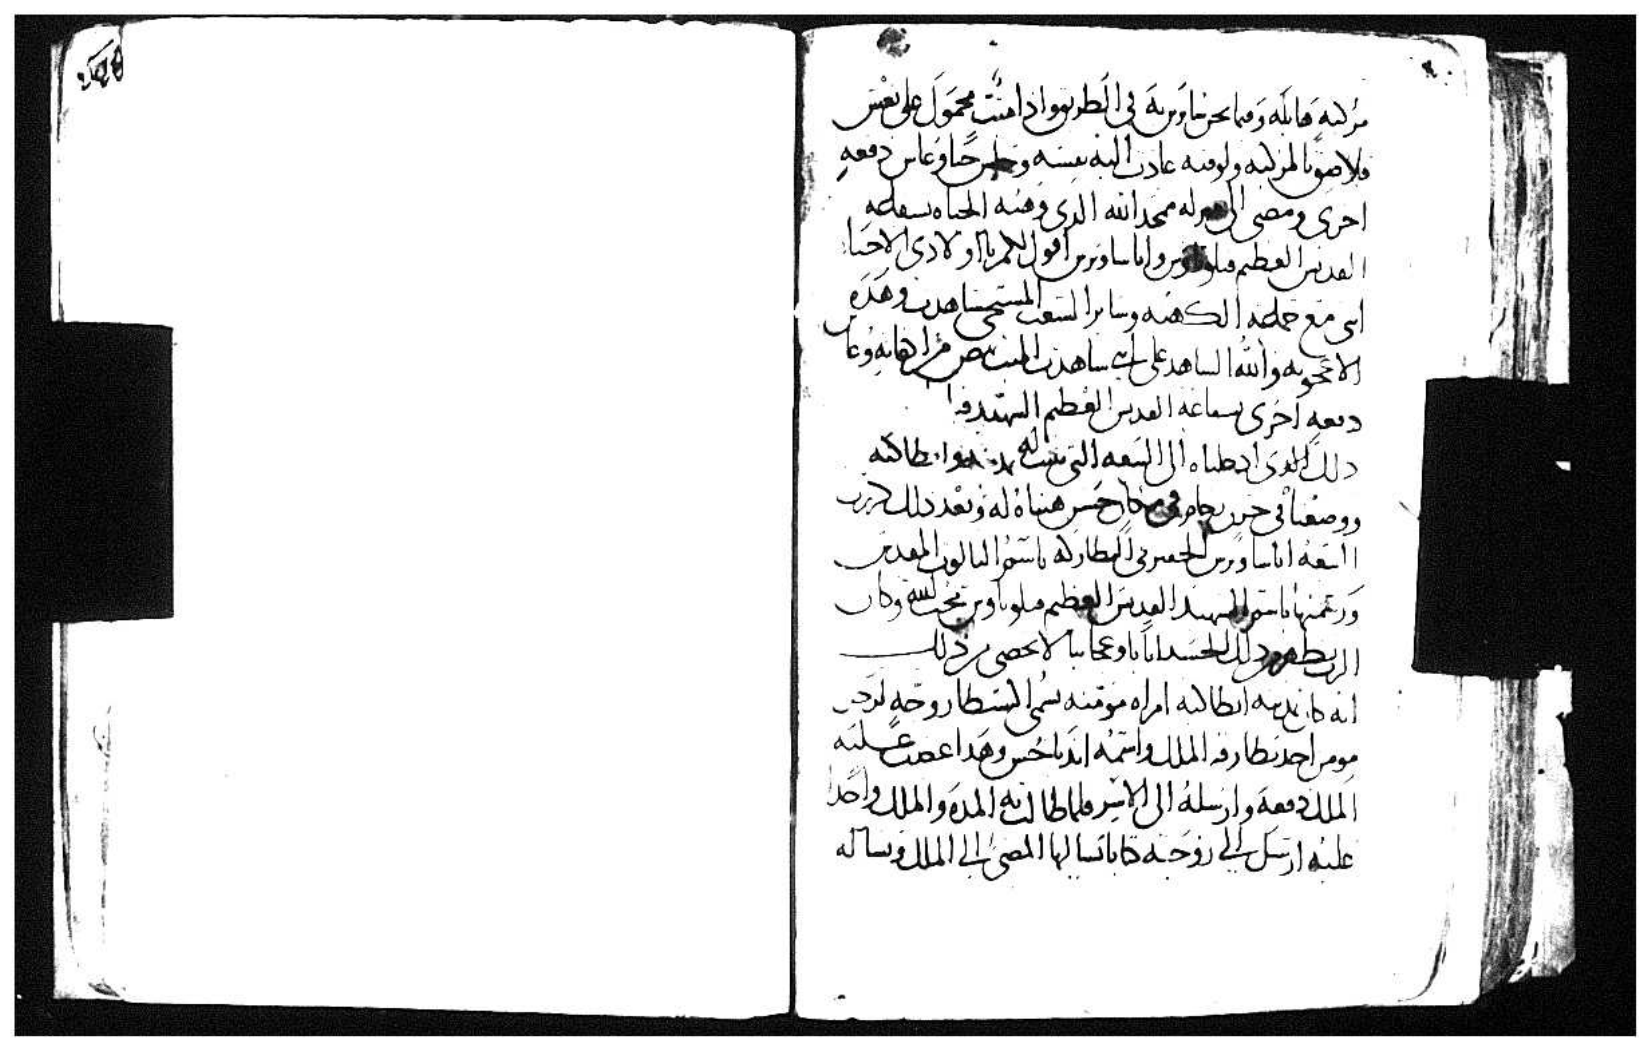 مركبه هايله وفيما نحن سايرين في الطريق واذا ميت محمول على نعش
فلاصق المركبه ولوقته عادت اليه نفسه وجلس حيا وعاش دفعه
اخرى ومضى الى منزله ممجدا لله الذي وهبه الحياه بشفاعه
القديس العظيم وانا ساويرس اقول لكم يا اولادي الاحبا
انى مع جماعه الكهنه وساير الشعب المسيحي شاهدت هذه
الاعجوبه والله الشاهد على اني شاهدت الميت نهض من اكفانه وعاش
دفعه اخرى بشفاعه القديس العظيم الشهيد
ذلك الذى ادخلناه الى البيعه التى بنيت له انطاكيه
ووضعناه في جرن رخام في مكان حسن هيناه له وبعد ذلك كرزت
البيعه انا ساويرس الحقير في البطاركه باسم الثالوث المقدس
ورسمتها باسم الشهيد القديس العظيم محب الله وكان
الرب يظهر من ذلك الجسد اياتا وعجايبا لا تحصى من ذلك
انه كان بمدينه انطاكيه امراه مومنه تسمى زوجه لرجل
مومن احد بطارقه الملك واسمه وهذا غضب عليه
الملك دفعه وارسله الى الاسر فلما طالت به المده والملك واجدا
عليه ارسل الى زوجته كتابا تسالها المضى الى الملك وتساله